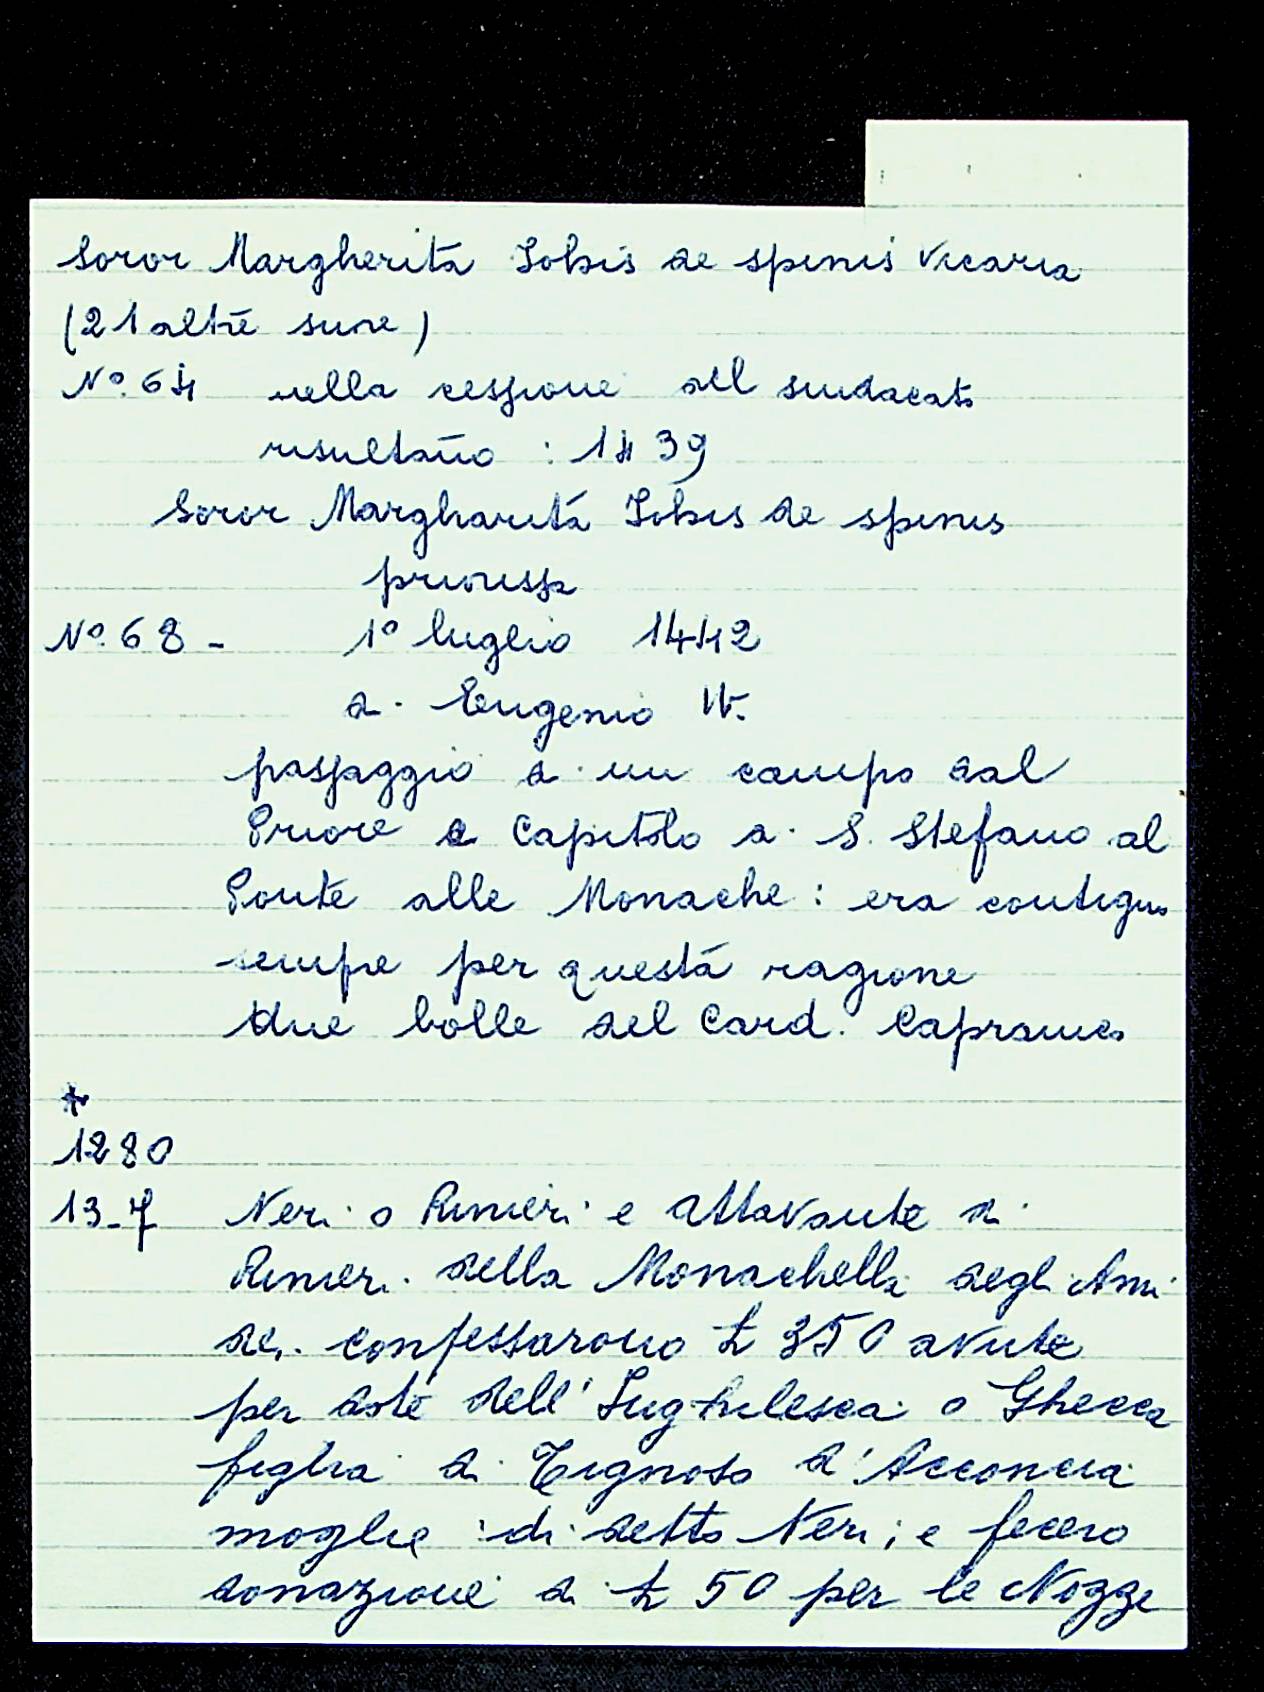 Soror Margherita Iohis de spinis Vicaria
(21 altre suore)
Nº. 64 nella cessione del sindacato
risultano : 1439
Soror Margharita Iohis de spinis
priorissa
Nº. 68 - 1º luglio 1442
di Eugenio IV.
passaggio di un campo dal
Priore e Capitolo di S. Stefano al
Ponte alle Monache : era contiguo
sempre per questa ragione
due bolle del Card. Capranica
*
1280
13-7 Neri o Rinieri e Attavante di
Rinieri della Monachella degli Ami
dei. confessarono £ 350 avute
per dote dell' Inghilesca o Ghecca
figlia di Tignoso d'Acconcia
moglie di detto Neri; e fecero
donazione di £ 50 per le Nozze